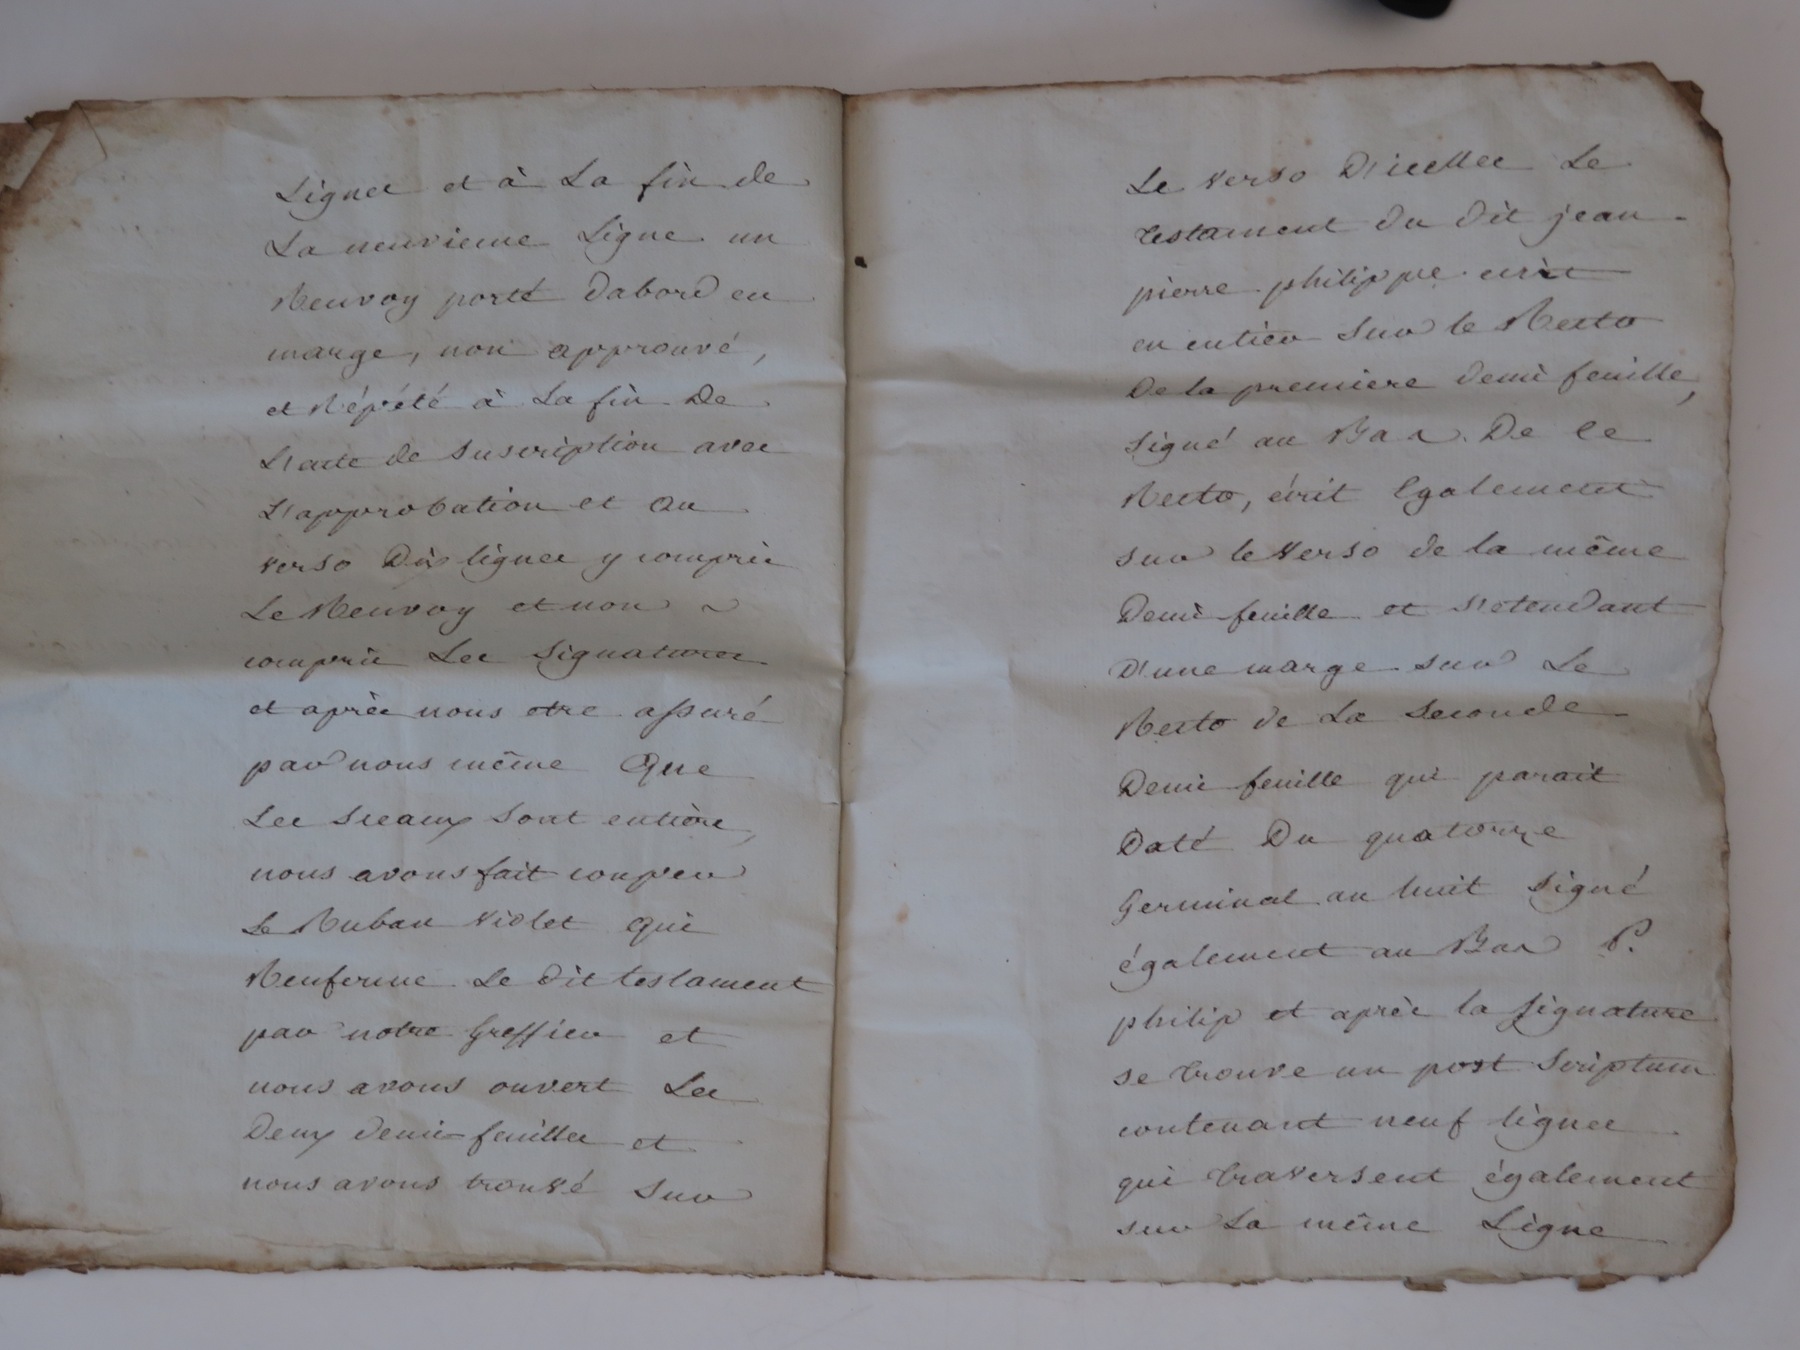 Lignes et à La fin de
La neuvieme Ligne un
Renvoy porté dabord en
marge, non approuvé,
et Répété à La fin De
L'acte de Suscription avec
L'approbation et au
verso Dix lignes y compris
Le Renvoy et non
compris Les Signatures
et après nous etre assuré
par nous même Que
Les Sceaux Sont entiers,
nous avons fait couper
Le Ruban Violet Qui
Renferme Le dit testament
par notre Greffier et
nous avons ouvert Les
Deux demie feuilles et
nous avons trouvé Sur
Le verso D'icelles Le
testament du dit jean
pierre philippe écrit
en entier Sur le Recto
De la premiere demi feuille,
Signé au Bas De ce
Recto, écrit Egalement
sur le verso de la même
Demi feuille et S'etendant
D'une marge sur Le
Recto de La Seconde
Demi feuille qui parait
Daté Du quatorze
Germinal an huit Signé
également au Bas P.
philip et après la Signature
se trouve un post Scriptum
contenant neuf lignes
qui traversent également
sur La même Ligne